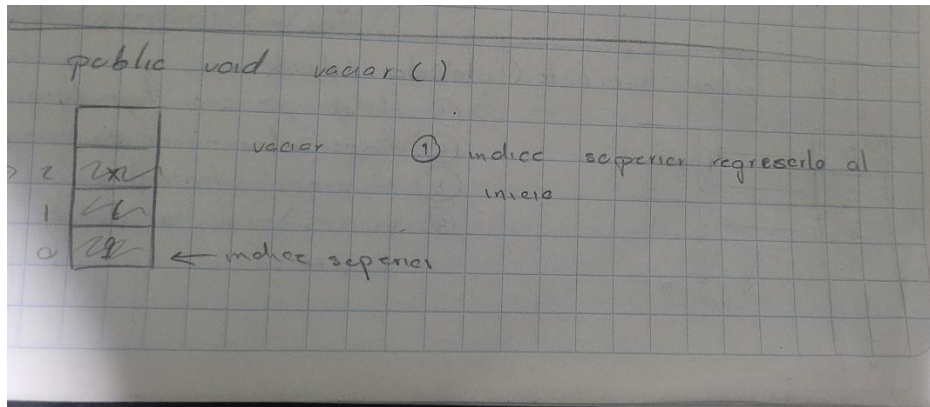 public void vaciar ()
vaciar ① indice superior regreserlo al
inicio
2
1
0 ← indice superior